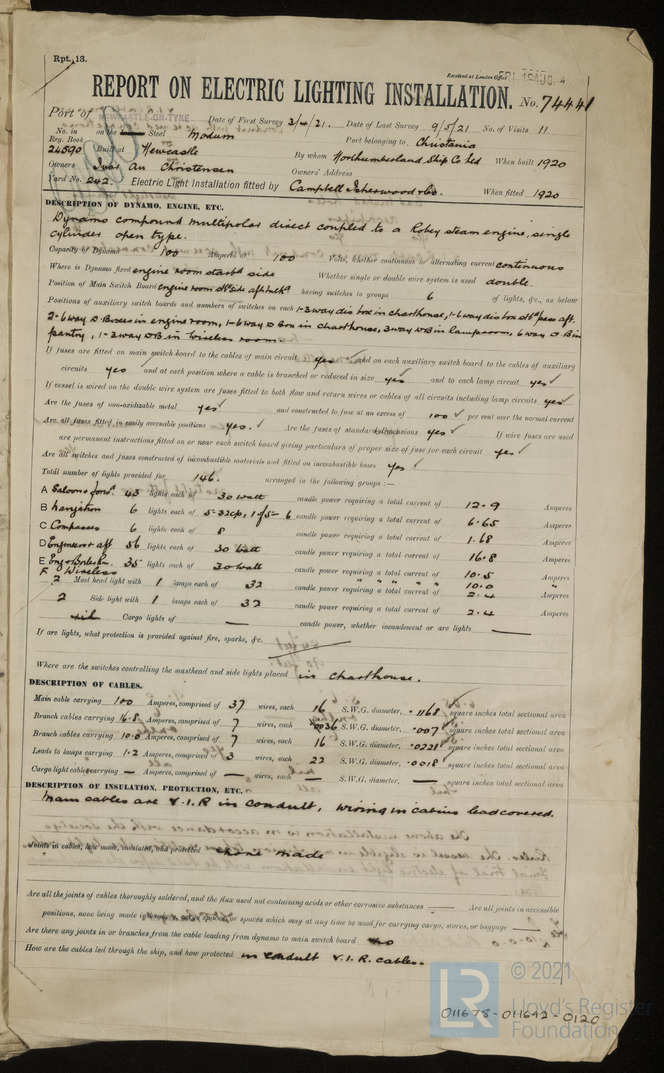 Rpt. 13.
Received at London Office FRI. 19 AUG.
REPORT ON ELECTRIC LIGHTING INSTALLATION. No. 74441
Port of NEWCASTLE-ON-TYNE Date of First Survey 3/4/21. Date of Last Survey 9/5/21 No. of Visits 11.
No. in Reg. Book on the Steel Modum Port belonging to Christania
24590 Built at Newcastle By whom Northumberland Ship Co Ltd When built 1920
Owners Christensen Owners' Address
Yard No. 242. Electric Light Installation fitted by Campbell Isherwood & Co. When fitted 1920
DESCRIPTION OF DYNAMO, ENGINE, ETC.
Dynamo compound multipolar direct coupled to a Robey steam engine, single
cylinder open type.
Capacity of Dynamo 100 Amperes at 100 Volts, whether continuous or alternating current continuous
Where is Dynamo fixed engine room starbd side Whether single or double wire system is used double.
Position of Main Switch Board engine room having switches to groups 6 of lights, &c., as below
Positions of auxiliary switch boards and numbers of switches on each 1-3way dis box in charthouse, 1-6way dis box pass aft.
2-6way D-Boxes in engine room, 1-6way D Box in charthouse, 3way DB in lamproom, 6way DB in
pantry, 1-2way DB in Wireless room
If fuses are fitted on main switch board to the cables of main circuit yes and on each auxiliary switch board to the cables of auxiliary
circuits yes and at each position where a cable is branched or reduced in size yes and to each lamp circuit yes
If vessel is wired on the double wire system are fuses fitted to both flow and return wires or cables of all circuits including lamp circuits yes
Are the fuses of non-oxidizable metal yes and constructed to fuse at an excess of 100 per cent over the normal current
Are all fuses fitted in easily accessible positions yes. Are the fuses of standard dimensions yes If wire fuses are used
are permanent instructions fitted on or near each switch board giving particulars of proper size of fuse for each circuit yes
Are all switches and fuses constructed of incombustible materials and fitted on incombustible bases yes
Total number of lights provided for 146. arranged in the following groups :—
A Saloons ford. 43 lights each of 30 watt candle power requiring a total current of 12.9 Amperes
B Navigation 6 lights each of 5-32cp, 1 of 5-6 candle power requiring a total current of 6.65 Amperes
C Compasses 6 lights each of 8 candle power requiring a total current of 1.68 Amperes
D Engineers aft 56 lights each of 30 watt candle power requiring a total current of 16.8 Amperes
E Eng & Boiler Rm. 35 lights each of 30 watt candle power requiring a total current of 10.5 Amperes
F Wireless " " " " " 10.0 "
2 Mast head light with 1 lamps each of 32 candle power requiring a total current of 2.4 Amperes
2 Side light with 1 lamps each of 32 candle power requiring a total current of 2.4 Amperes
nil Cargo lights of — candle power, whether incandescent or arc lights —
If arc lights, what protection is provided against fire, sparks, &c.
Where are the switches controlling the masthead and side lights placed in charthouse.
DESCRIPTION OF CABLES.
Main cable carrying 100 Amperes, comprised of 37 wires, each 16 S.W.G. diameter, .1168 square inches total sectional area
Branch cables carrying 16.8 Amperes, comprised of 7 wires, each .036 S.W.G. diameter, .007 square inches total sectional area
Branch cables carrying 10.0 Amperes, comprised of 7 wires, each 16 S.W.G. diameter, .0221 square inches total sectional area
Leads to lamps carrying 1.2 Amperes, comprised of 3 wires, each 22 S.W.G. diameter, .0018 square inches total sectional area
Cargo light cables carrying — Amperes, comprised of — wires, each — S.W.G. diameter, — square inches total sectional area
DESCRIPTION OF INSULATION, PROTECTION, ETC.
Main cables are V.I.R in conduit, wiring in cabins leadcovered.
Joints in cables, how made, insulated, and protected none made
Are all the joints of cables thoroughly soldered, and the flux used not containing acids or other corrosive substances — Are all joints in accessible
positions, none being made in spaces which may at any time be used for carrying cargo, stores, or baggage —
Are there any joints in or branches from the cable leading from dynamo to main switch board no
How are the cables led through the ship, and how protected in conduit V.I.R. cables.
LR © 2021
Lloyd's Register
Foundation
011678-011692-0120